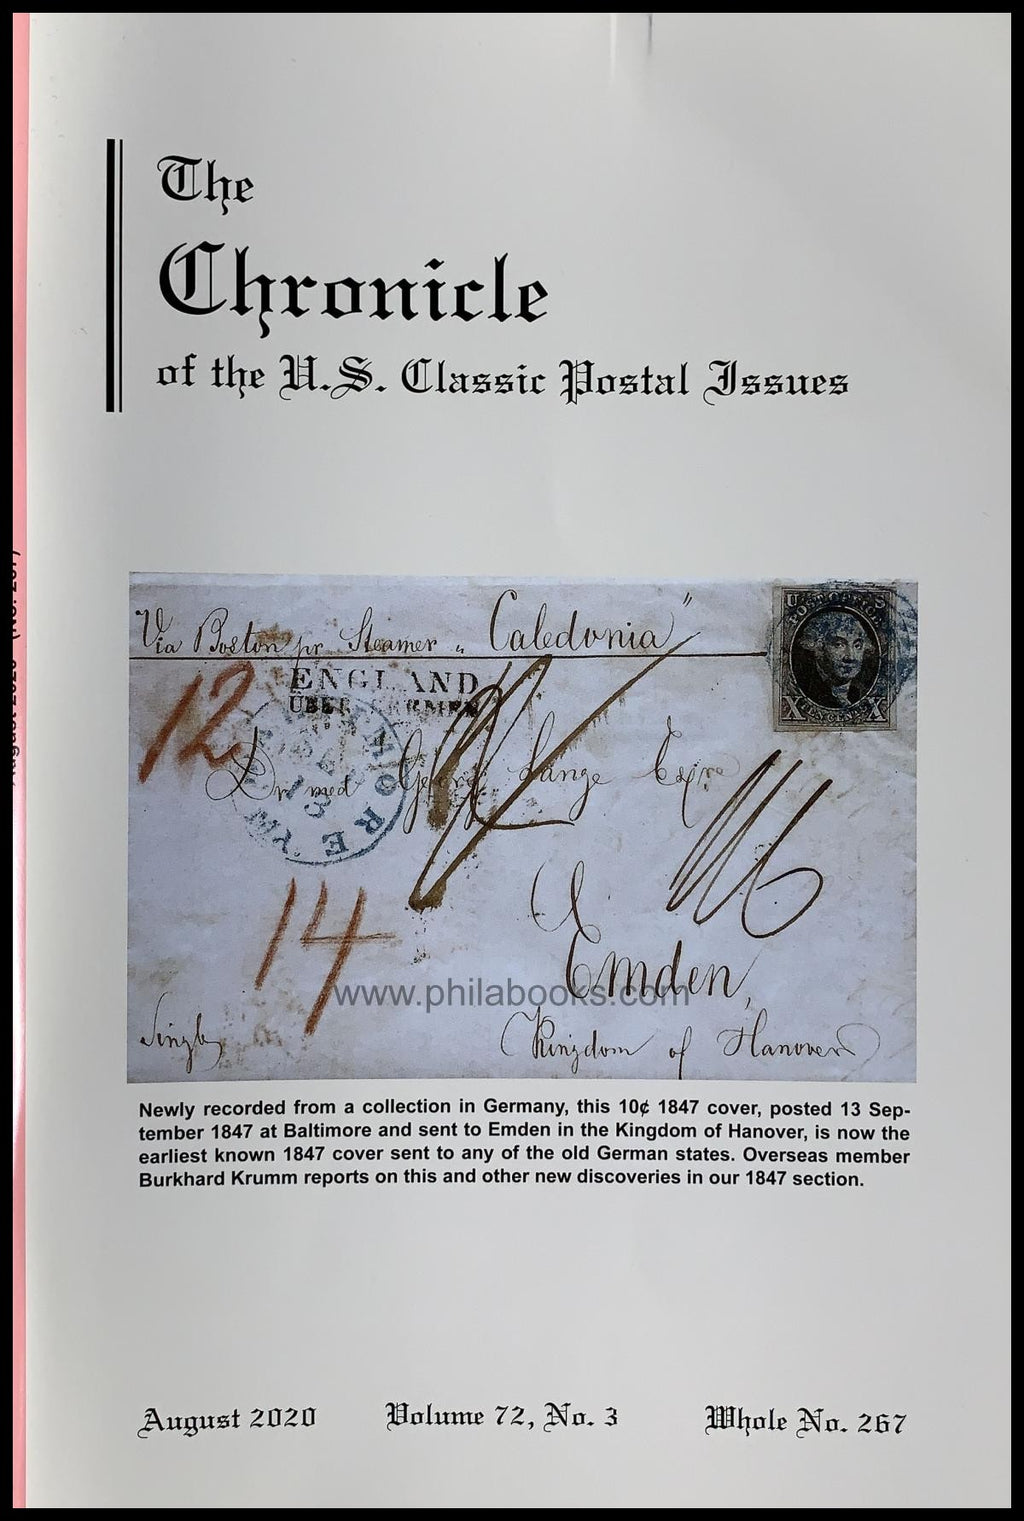 The
Chronicle
of the U.S. Classic Postal Issues
Via Boston pr Steamer „ Caledonia"
U S
POST OFFICE
X X
12
ENGLAND
UBER BREMEN
BALTIMORE MD
SEP
13
Dr med Georg Lange Esqre
14
Emden,
www.philabooks.com
Kingdom of Hanover
Newly recorded from a collection in Germany, this 10¢ 1847 cover, posted 13 Sep-
tember 1847 at Baltimore and sent to Emden in the Kingdom of Hanover, is now the
earliest known 1847 cover sent to any of the old German states. Overseas member
Burkhard Krumm reports on this and other new discoveries in our 1847 section.
August 2020 Volume 72, No. 3 Whole No. 267
August 2020 (No. 267)